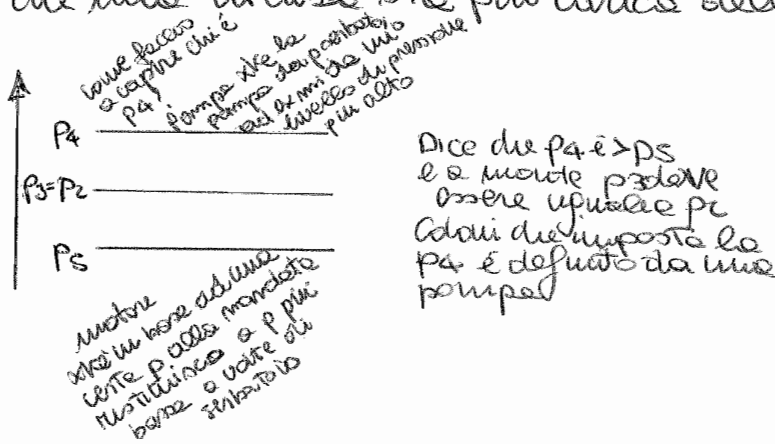 come faccio
a capire chi é
P4?
Pompa xke la
pompa da serbatoio
ad ex mi da un
livello di pressione
più alto
P4
P3=P2
P5
Dice che P4 é >P5
e a monte p3 deve
essere uguale p2
Colui che imposta la
P4 é definito da una
pompa
motore
xké in base ad una
certa p alla mandata
restituisco a p più
bassa a volte di
serbatoio